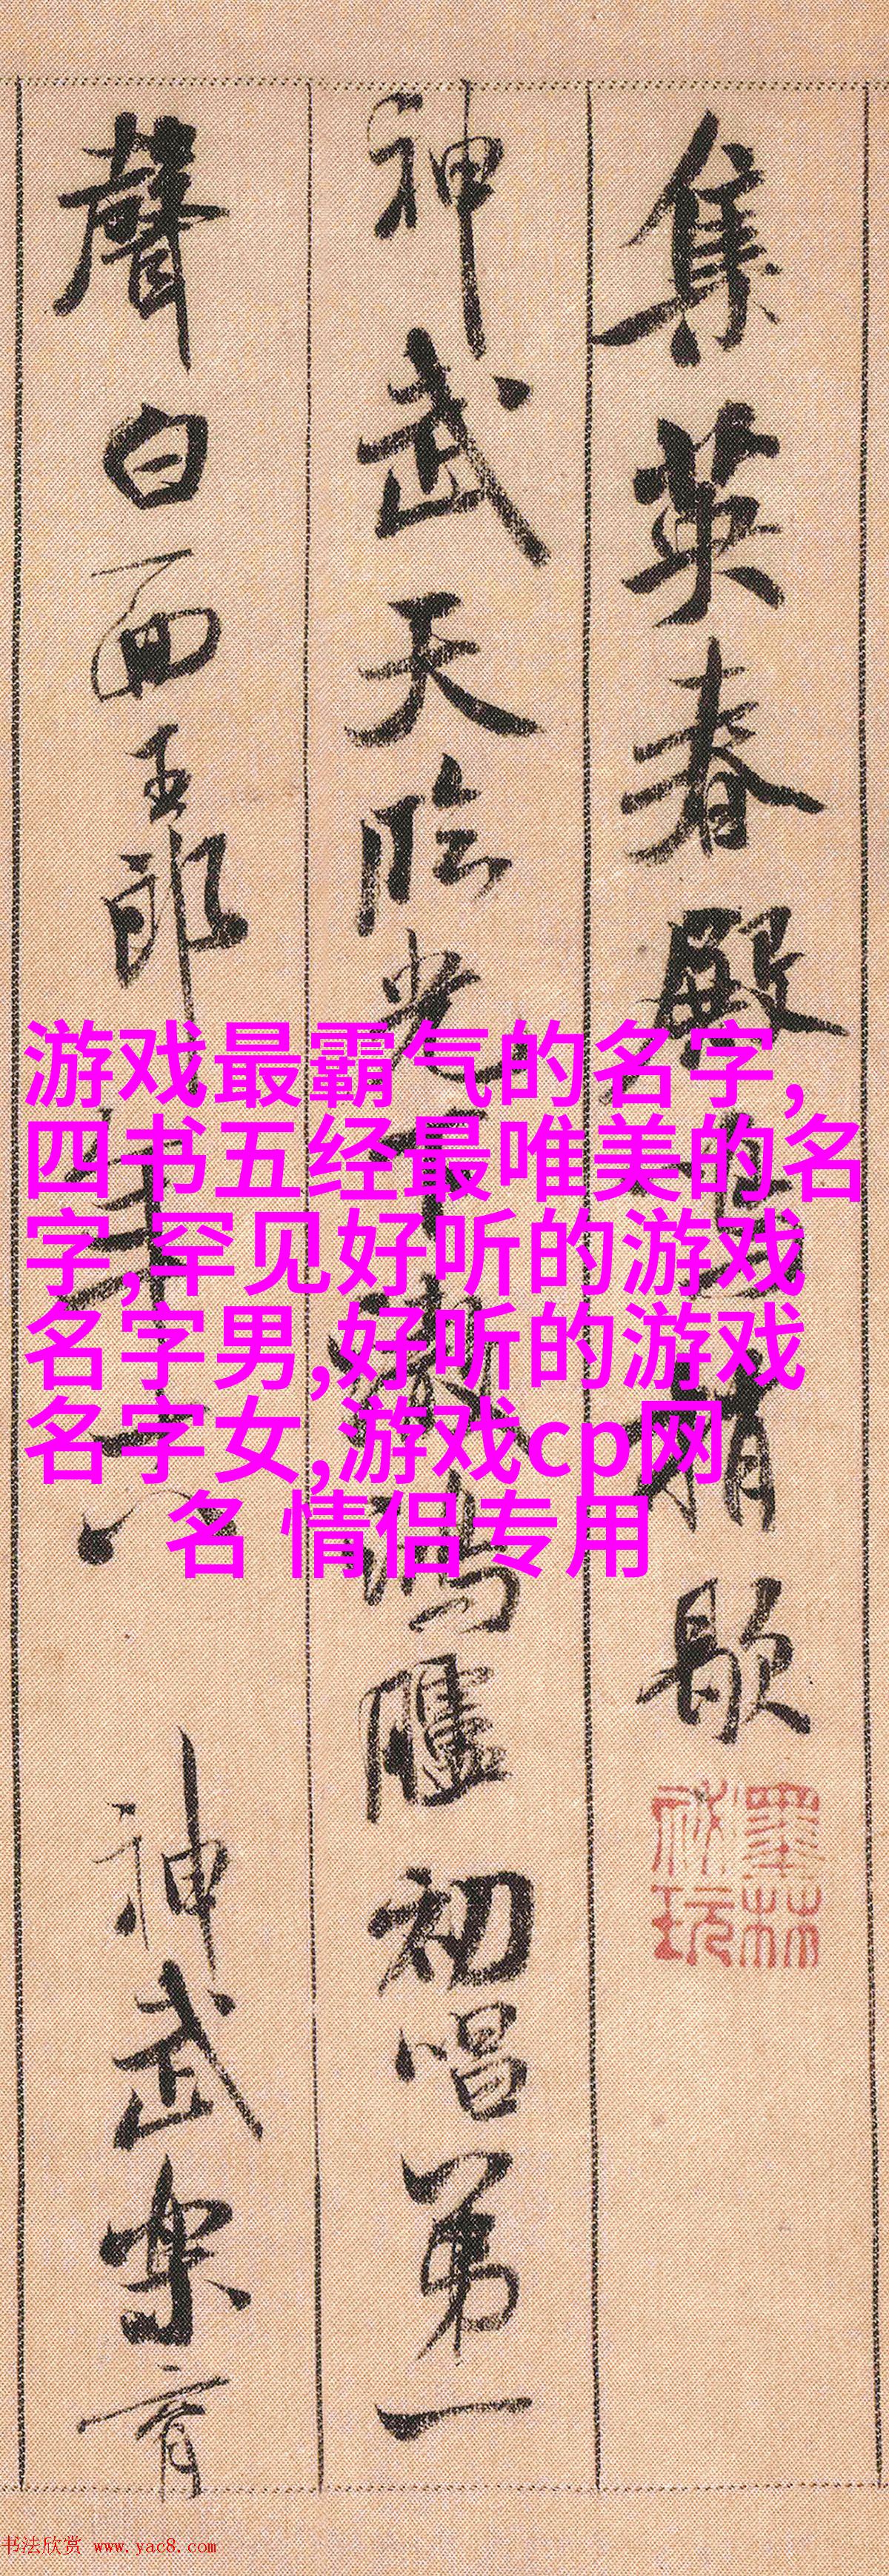 集英春殿鳴捎歇
墨林
祕玩
神武天臨光下澈鴻臚初唱第一
聲白面玉郎年十八 神武樂育
游戏最霸气的名字,
四书五经最唯美的名
字,罕见好听的游戏
名字男,好听的游戏
名字女,游戏cp网
名 情侣专用
书法欣赏 www.yac8.com